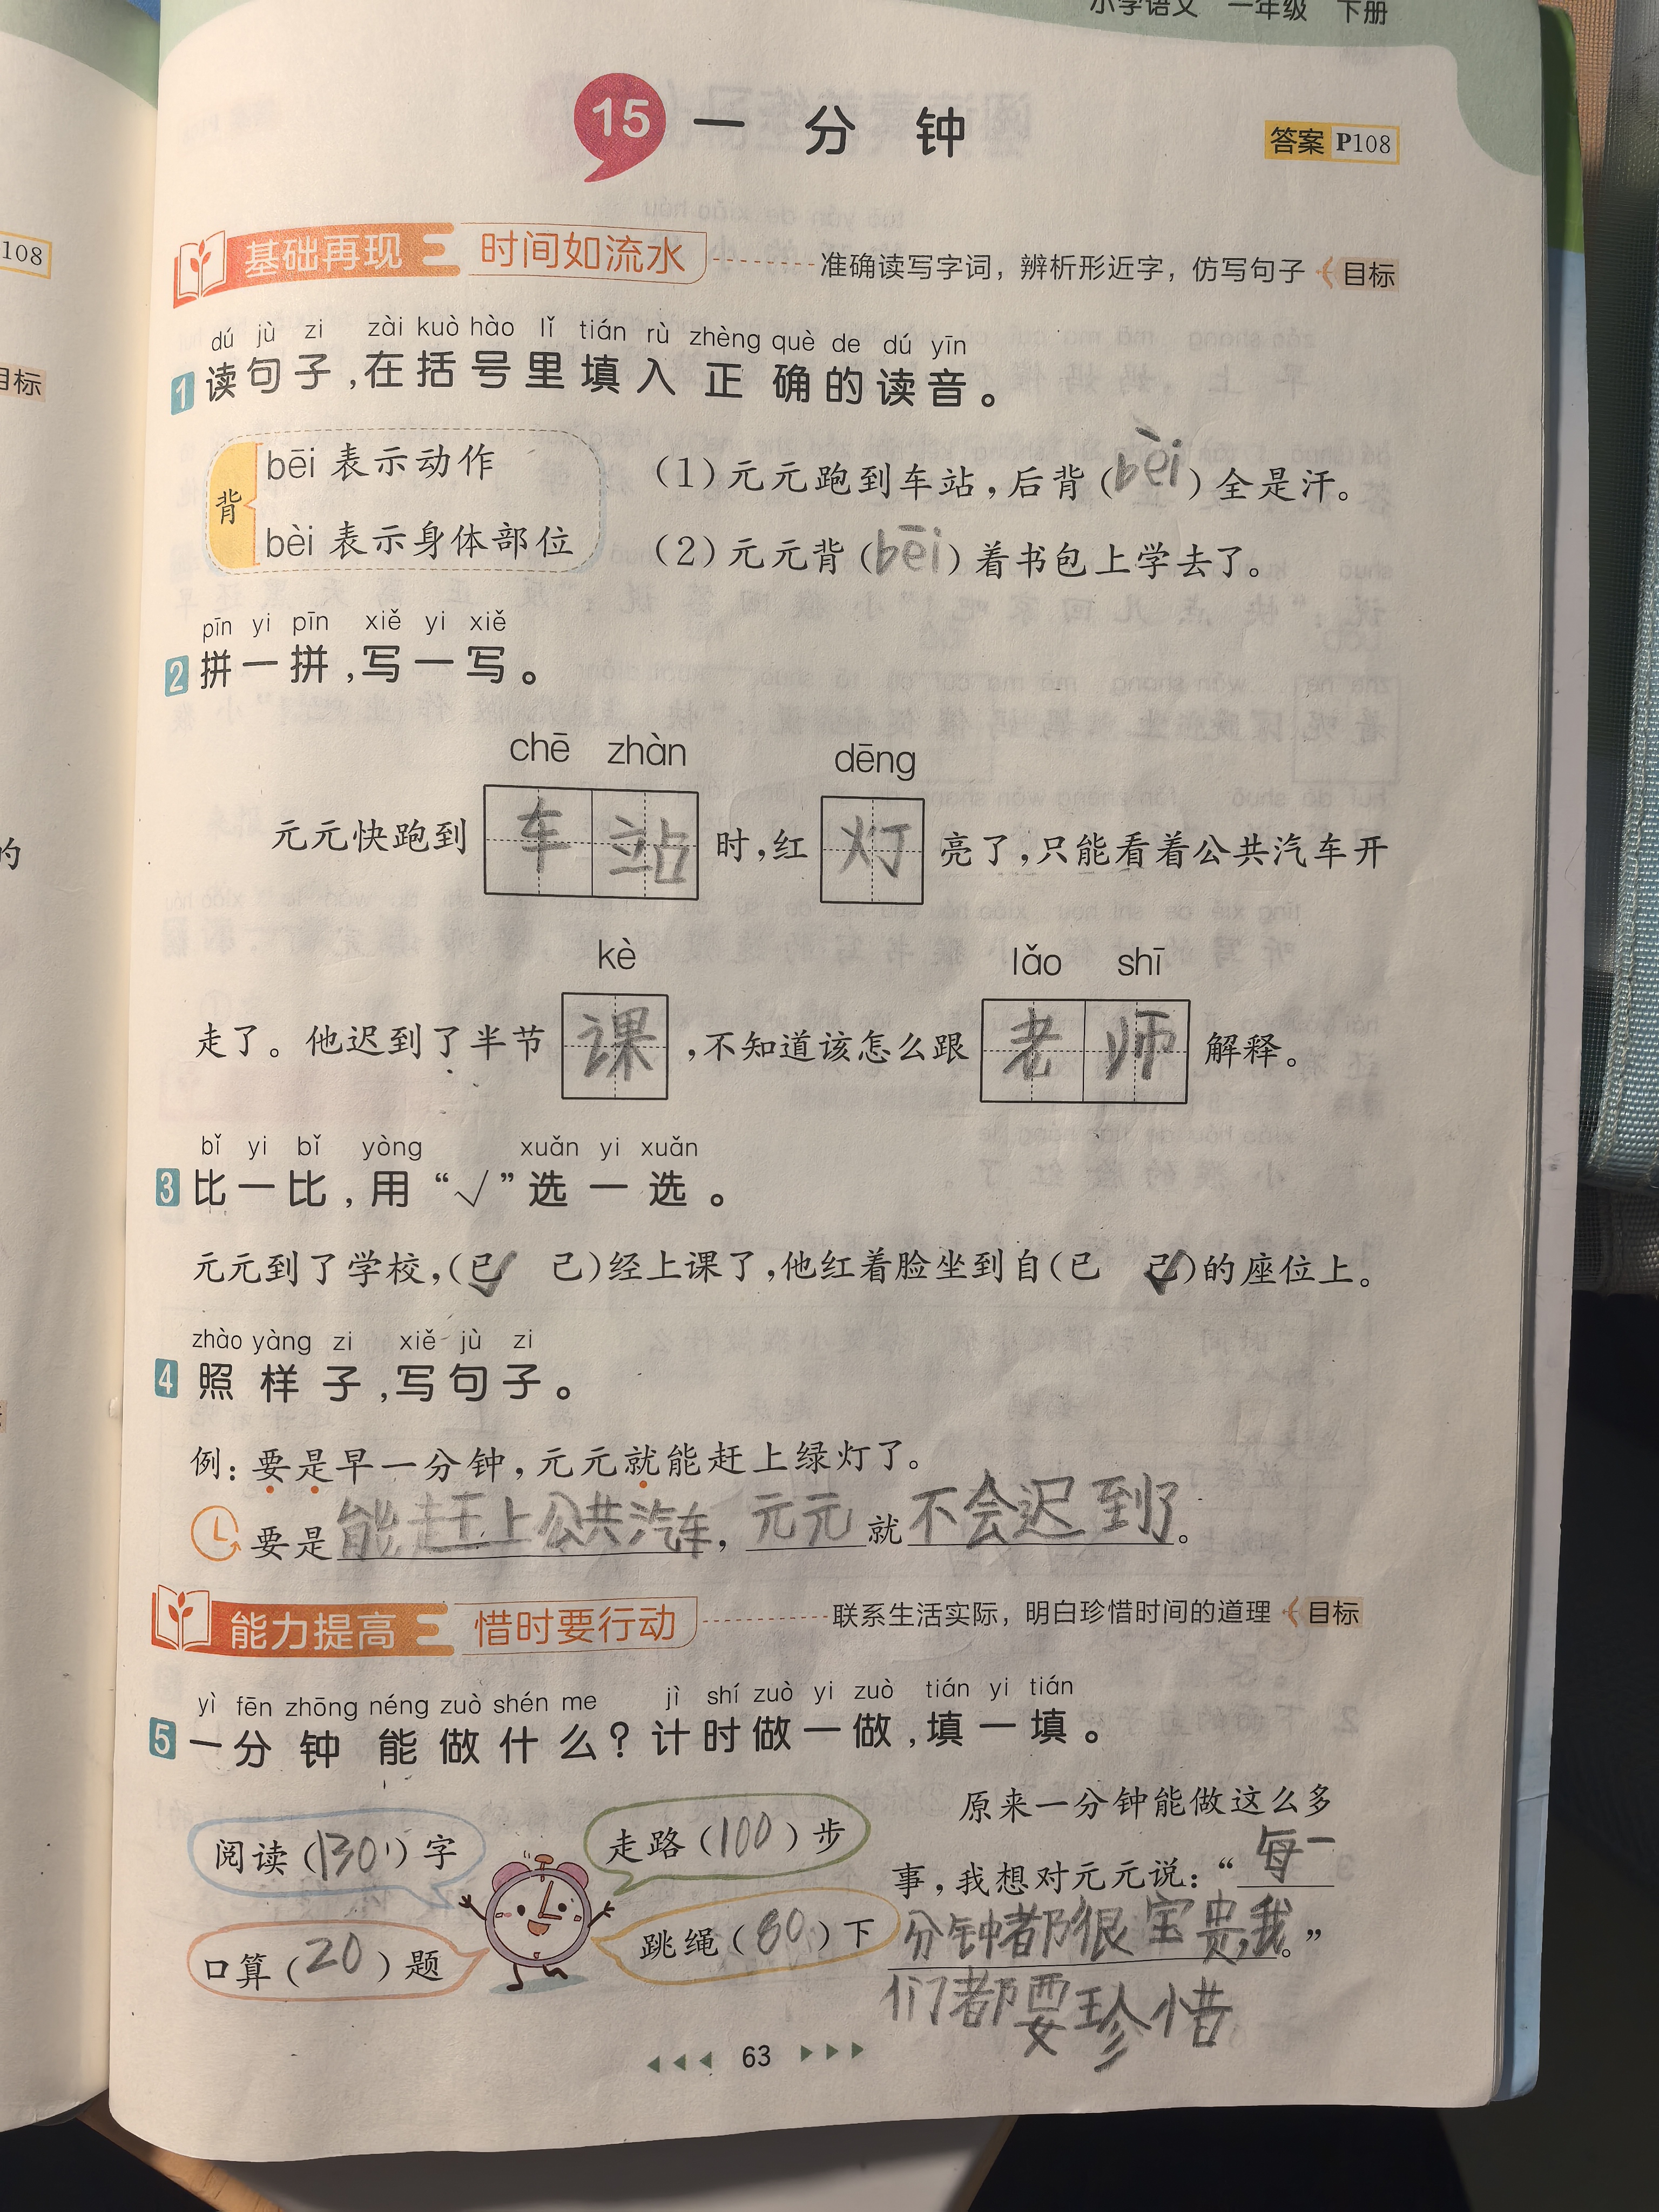 小学语文 一年级 下册
15 一分钟
答案 P108
108
基础再现 时间如流水 准确读写字词，辨析形近字，仿写句子 目标
目标
dú jù zi zài kuò hào lǐ tián rù zhèng què de dú yīn
1 读句子，在括号里填入正确的读音。
背
bēi 表示动作
bèi 表示身体部位
（1）元元跑到车站，后背（bèi）全是汗。
（2）元元背（bēi）着书包上学去了。
pīn yi pīn xiě yi xiě
2 拼一拼，写一写。
chē zhàn dēng
元元快跑到车站时，红灯亮了，只能看着公共汽车开
的
kè lǎo shī
走了。他迟到了半节课，不知道该怎么跟老师解释。
bǐ yi bǐ yòng xuǎn yi xuǎn
3 比一比，用“√”选一选。
元元到了学校，（已√ 己）经上课了，他红着脸坐到自（已 己√）的座位上。
zhào yàng zi xiě jù zi
4 照样子，写句子。
例：要是早一分钟，元元就能赶上绿灯了。
要是能赶上公共汽车，元元就不会迟到了。
能力提高 惜时要行动 联系生活实际，明白珍惜时间的道理 目标
yì fēn zhōng néng zuò shén me jì shí zuò yi zuò tián yi tián
5 一分钟能做什么？计时做一做，填一填。
阅读（130）字
走路（100）步
口算（20）题
跳绳（80）下
原来一分钟能做这么多
事，我想对元元说：“每一
分钟都很宝贵，我。”
们都要珍惜
63